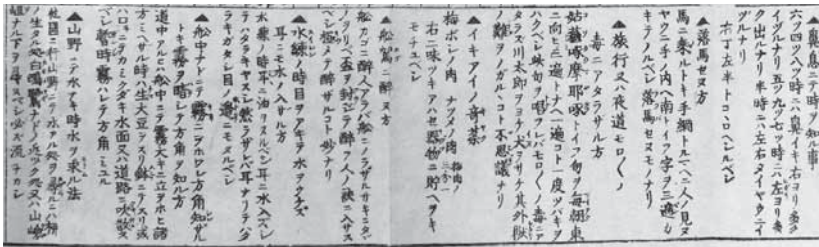 ▲鼻息ニテ時ヲ知ル事
六ツ四ツ八ツ時ニハ鼻イキ右ヨリ多ク
イヅルナリ五ツ九ツ七ツ時ニハ左ヨリ多
ク出ルナリ半時ニハ左右タイヤウニイ
ヅルナリ
▲落馬セヌ方
馬ニ乗ルトキ手綱トルベシ人ノ見ヌ
ヤウニ手ノ内ヘ南トイフ字ヲ三遍カ
キテノルベシ落馬セヌモノナリ
▲旅行又ハ夜道モロ〱ノ
毒ニアタラザル方
姑蘇啄摩耶啄トイフ句ヲ毎朝東
ニ向ヒ三遍トナヘ一遍コト一度ヅバキヲ
ハクベシ此句ヲ唱フレバモロ〱ノ毒ニア
タラズ川太郎ヲヨケ犬ヲフサギ其外獣
ノ難ヲノガルヽコト不思議ナリ
▲イキアイノ奇薬
梅ボシノ肉 ナツメノ肉 梅肉ノ三分一
右二味ツキアハセ器物ニ貯ヘヲキ
モチユベシ
▲船駕ニ酔ヌ方
船カゴニ酔人アラバ船ニノラザルサキニタヽ
ノヲリヘ盃ヲ封ジテ酔フ人ノ袂ニ入サス
ベシ極メテ酔ザルコト妙ナリ
▲水練ノ時目ヲアキテ水ヲクヾル
耳ニモ水ノ入ザル方
水練ノ時耳ニ油ヲヌルベシ耳ニ水入ズシ
テハタラキヤスシ然ラザレバ耳ナリテハタ
ラキガタシ目ノ邊ニモヌルベシ
▲船中ナドニテ霧ニヲホハレ方角知ザル
トキ霧ヲ晴シテ方角ヲ知ル方
道中アルヒハ船中ニテ霧大キニ立ヲホヒ諸
方ミヘザル時ハ生大豆ヲスリ鉢ニテスリ或
ハ口ニテカミクダキ水面又ハ道路ニ吹散ス
ベシ暫時霧ハレテ方角ミユル
▲山野ニテ水ナキ時水ヲ求ル法
ノ生タル処白鷺鷥ナドノ近ヅク処又ハ山
組ナル下ヲ尋スベシ必ズ流テカシ